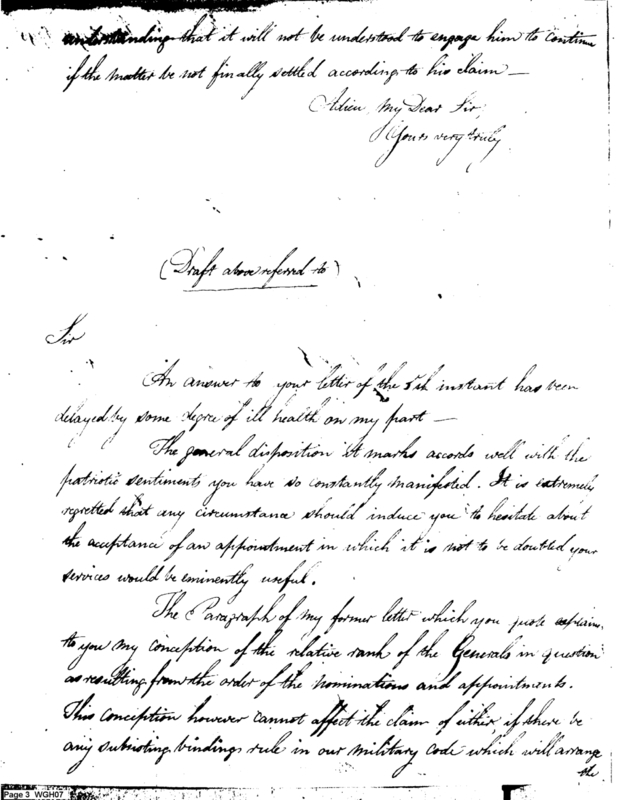 understanding that it will not be understood to engage him to continue
if the matter be not finally settled according to his claim —
Adieu, My Dear Sir,
Yours very truly
(Draft above referred to)
Sir
An answer to your letter of the 5th instant has been
delayed by some degree of ill health on my part —
The general disposition it marks accords well with the
patriotic sentiments you have so constantly manifested. It is extremely
regretted that any circumstance should induce you to hesitate about
the acceptance of an appointment in which it is not to be doubted your
services would be eminently useful.
The Paragraph of my former letter which you quote explains
to you my conception of the relative rank of the Generals in question
as resulting from the order of the nominations and appointments.
This conception however cannot affect the claim of either if there be
any subsisting binding rule in our military code which will arrange
the
Page 3 WGH07